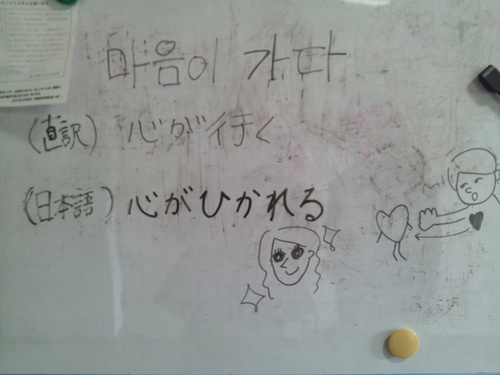 마음이 가다
(直訳) 心が行く
(日本語) 心がひかれる